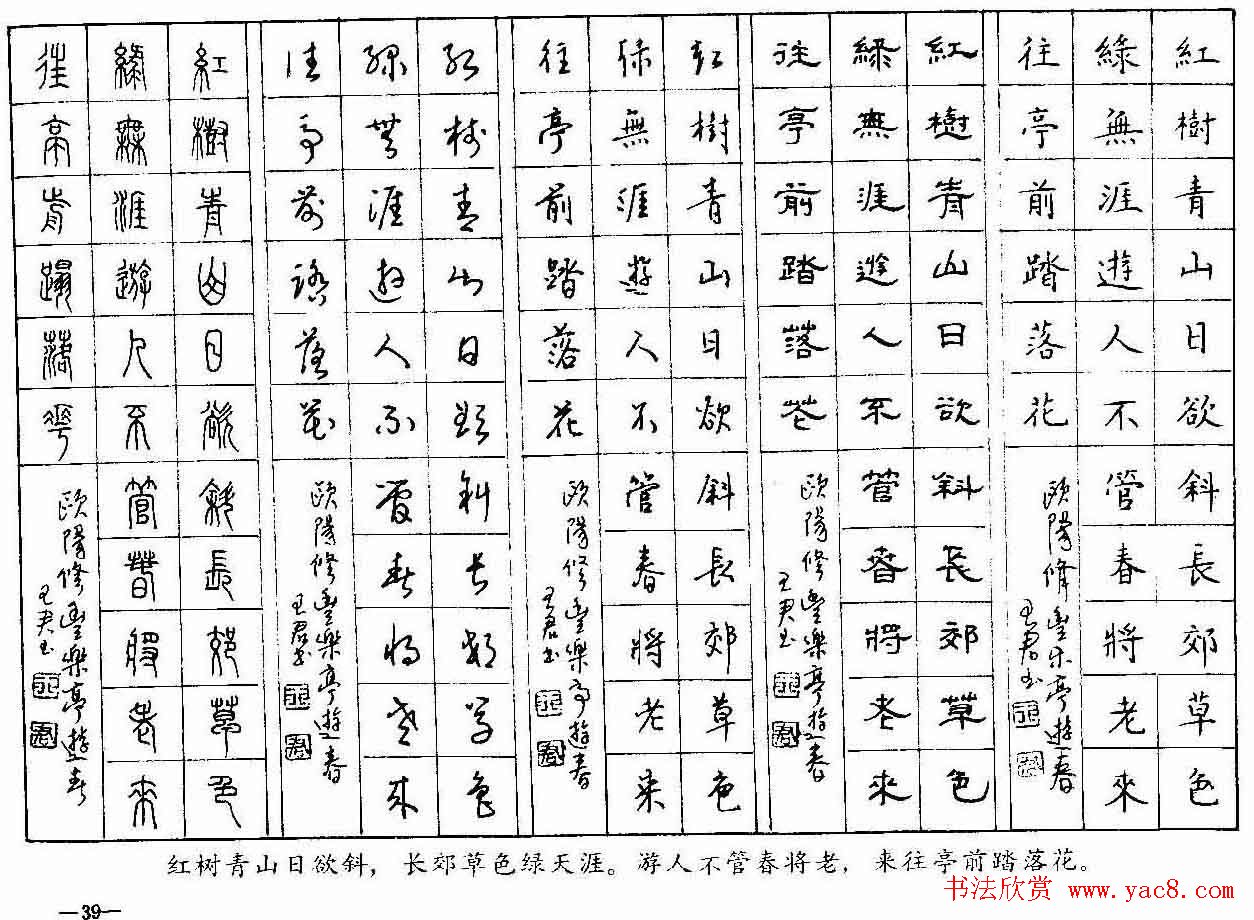 紅樹青山日欲斜長郊草色
綠無涯遊人不管春將老來
往亭前踏落花
歐陽修豐乐亭遊春
王君书
紅樹青山日欲斜長郊草色
綠無涯遊人不管春將老來
往亭前踏落花
歐陽修豐樂亭遊春
王君书
紅樹青山日欲斜長郊草色
綠無涯遊人不管春將老來
往亭前踏落花
歐陽修豐樂亭遊春
王君书
紅樹青山日欲斜長郊草色
綠無涯遊人不管春將老來
往亭前踏落花
歐陽修豐樂亭遊春
王君书
紅樹青山日欲斜長郊草色
綠無涯遊人不管春將老來
往亭前踏落花
歐陽修豐樂亭遊春
王君书
红树青山日欲斜，长郊草色绿天涯。游人不管春将老，来往亭前踏落花。
书法欣赏 www.yac8.com
—39—